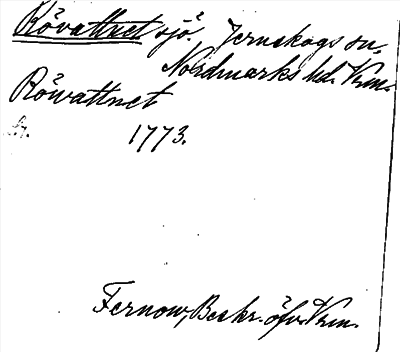 Rövattnet sjö. Jernskogs sn,
Nordmarks hd. Vrm.
Röwattnet
1773.
Fernow, Beskr. öfv. Vrm.